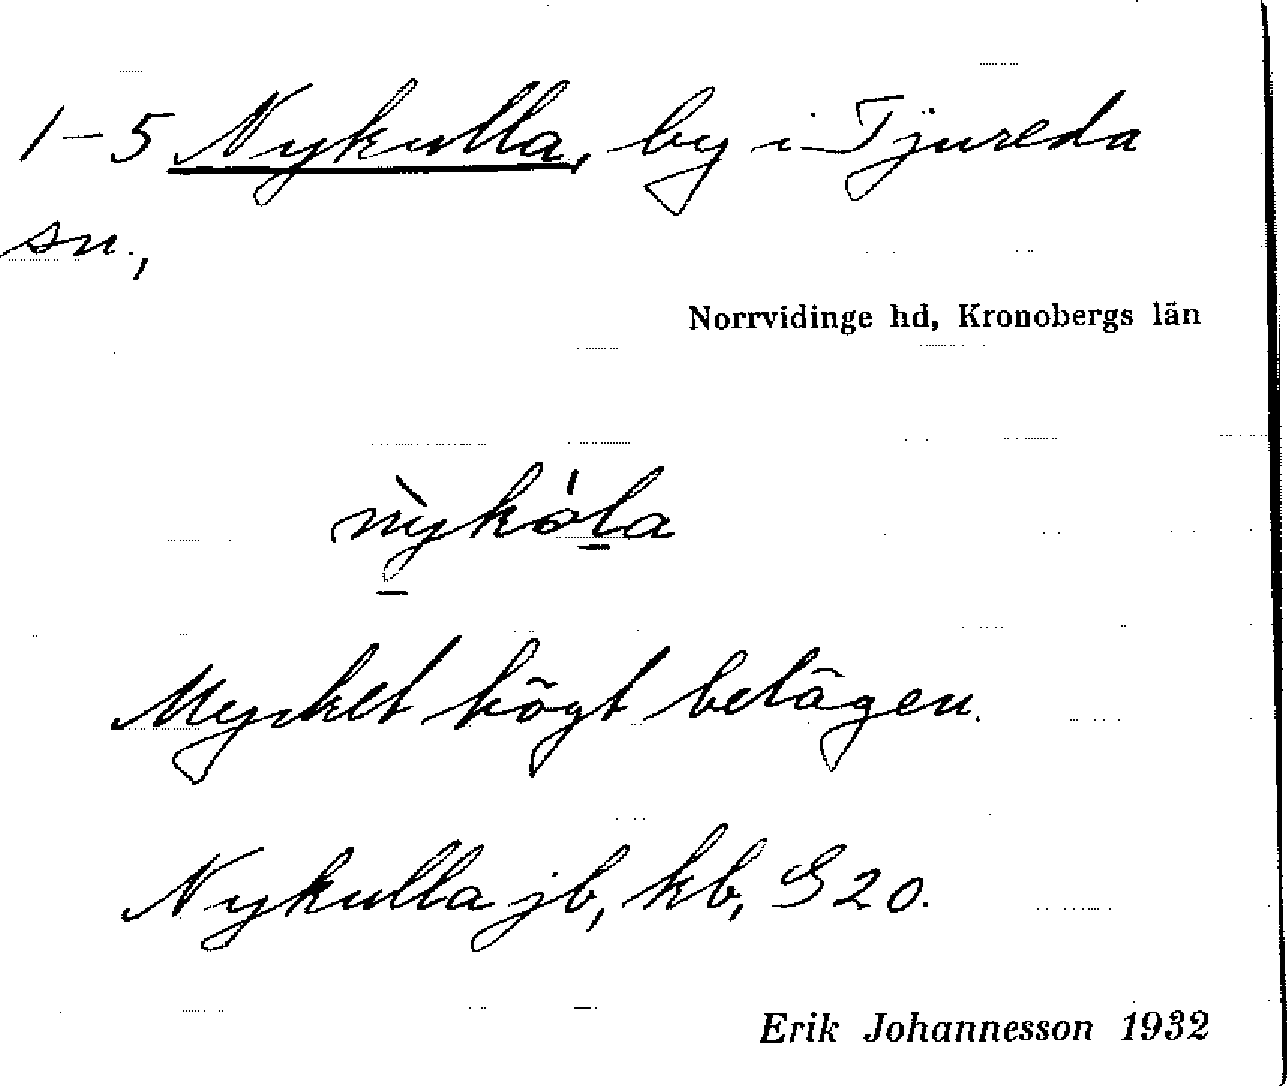 1–5 Nykulla, by i Tjureda
sn.,
Norrvidinge hd, Kronobergs län
nỳkȯ́la
Mycket högt belägen.
Nykulla jb, kb, S 20.
Erik Johannesson 1932